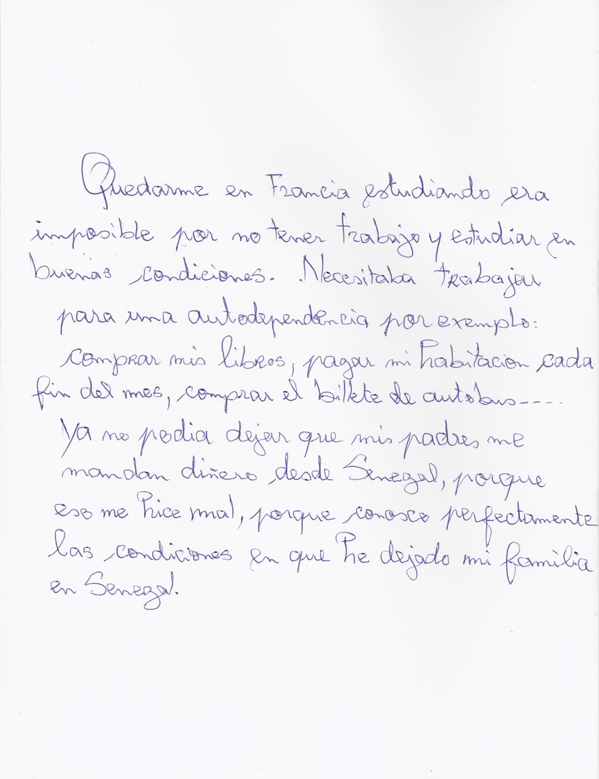 Quedarme en Francia estudiando era
imposible por no tener trabajo y estudiar en
buenas condiciones. Necesitaba trabajar
para una autodependencia por exemplo:
comprar mis libros, pagar mi habitacion cada
fin del mes, comprar el billete de autobus----
Ya no podia dejar que mis padres me
mandan diñero desde Senegal, porque
eso me hice mal, porque conosco perfectamente
las condiciones en que he dejado mi familia
en Senegal.